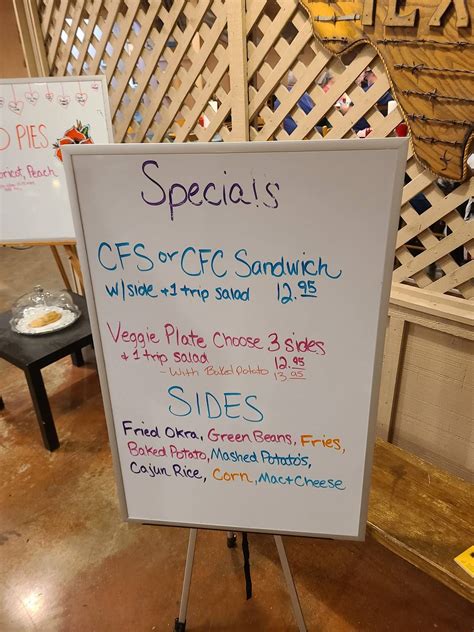 O PIES
ricot, Peach
Specials
CFS or CFC Sandwich
w/side +1 trip salad 12.95
Veggie Plate Choose 3 sides
+1 trip salad 12.95
- With Baked Potato 13.95
SIDES
Fried Okra, Green Beans, Fries,
Baked Potato, Mashed Potato's,
Cajun Rice, Corn, Mac+Cheese